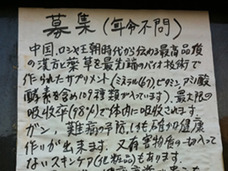 募集（年令不問）
中国、ロシャ王朝時代から伝わる最高品質
の漢方と薬草を最先端のバイオ技術で
作られたサプリメント（ミネラル67、ビタミン、アミノ酸
酵素を含め107種類が入っています）、最大限の
吸収率（98%）で体内に吸収されます。
ガン、難病の予防、しいては健康
作りが出来ます。又有害物質の一切入って
ないスキンケア（化粧品）もあります。